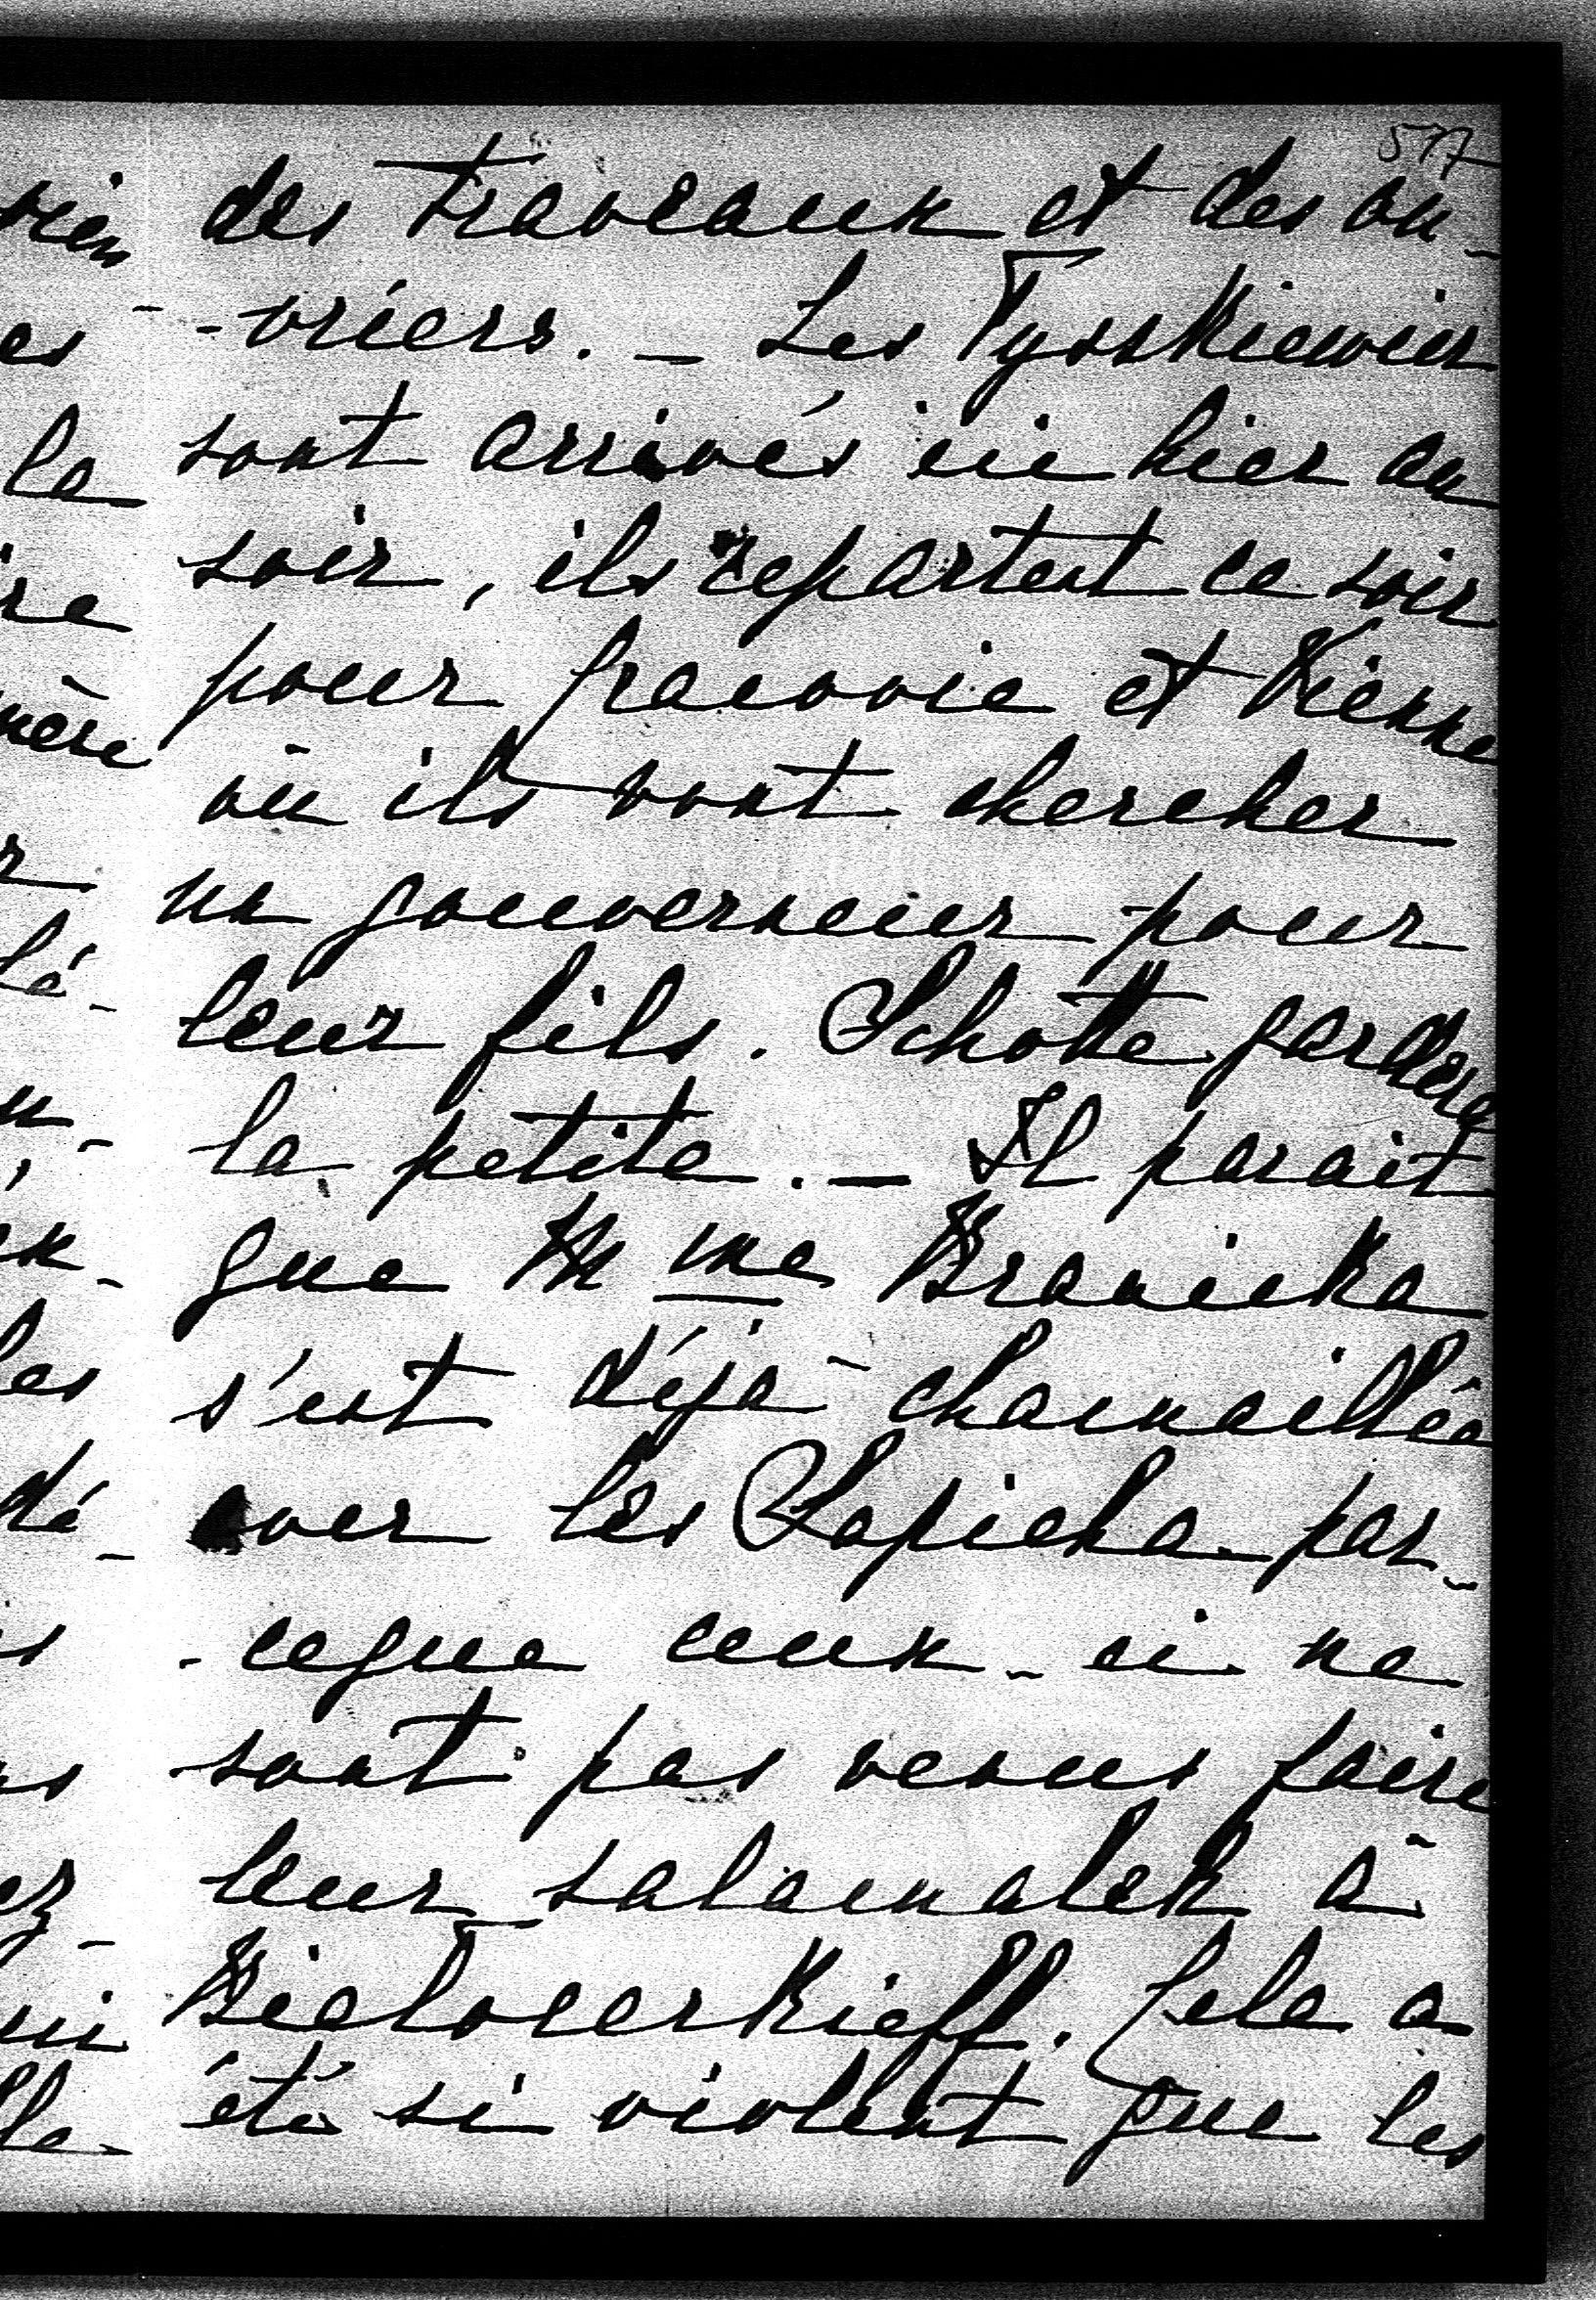 577
des travaux et des ou-
-vriers. - Les Tysskiewicz
sont arrivés ici hier au
soir, ils repartent ce soir
pour Cracovie et Vienne
où ils vont chercher
un gouverneur pour
leur fils. Schotte gardera
la petite. - Il parait
que Mme Branicka
s'est déjà chamaillée
avec les Sapieha par-
-ceque ceux-ci ne
sont pas venus faire
leur salamalek à
Bialocerkieff. Cela a
été si violent que les